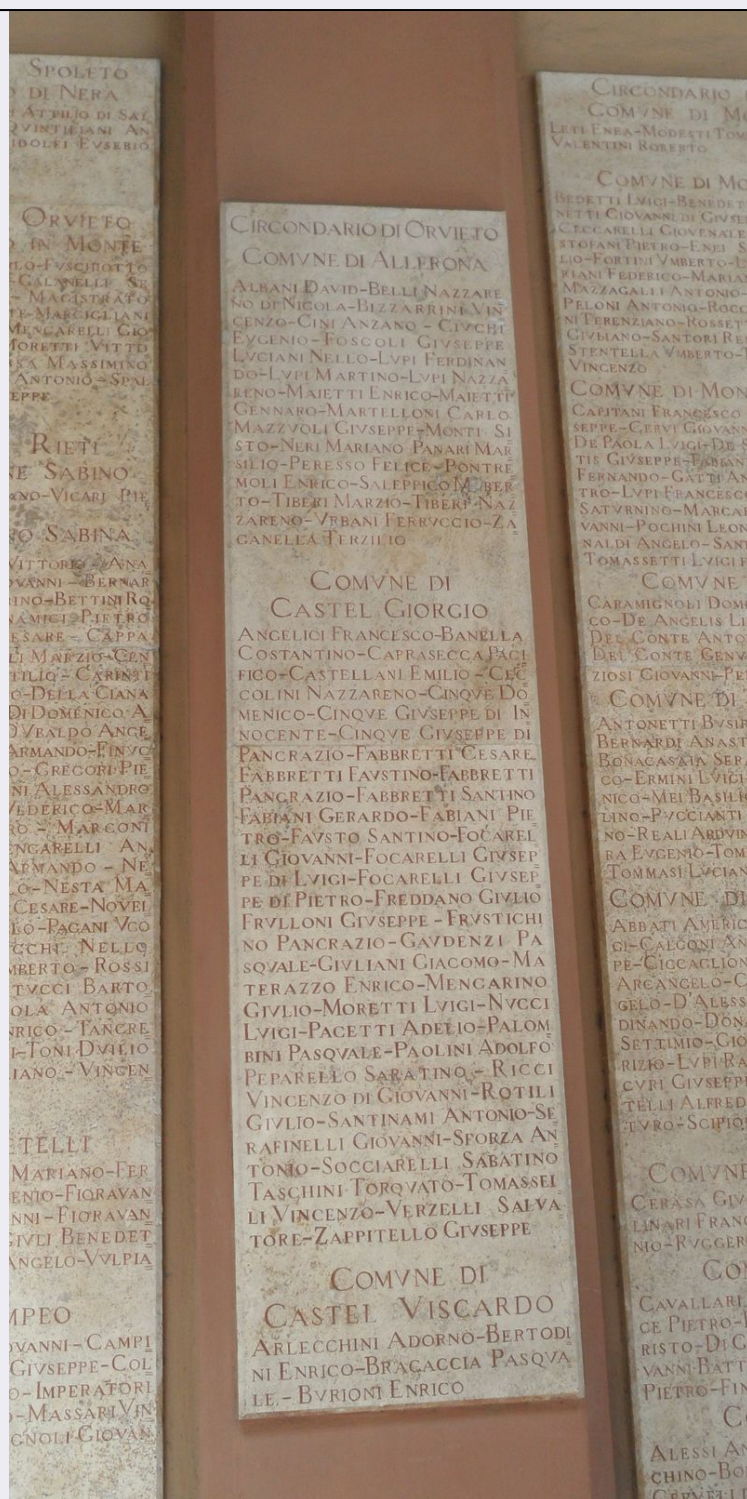 SPOLETO
DI NERA
ATTILIO DI SAL
QVINTILIANI AN
IDOLFI EVSEBIO
ORVIETO
IN MONTE
LO-FVSCHIOTTO
GALANELLI SE
MAGISTRATO
TE-MARCIGLIANI
MENCARELLI GIO
MORETTI VITTO
SA MASSIMINO
ANTONIO-SPAL
EPPE
RIETI
NE SABINO
ANO-VICARI PIE
O SABINA
VITTORIO-ANA
OVANNI-BERNAR
INO-BETTINI RO
NAMICI PIETRO
ESARE-CAPPA
LI MARZIO-CEN
TILIO-CARINTI
O-DELLA CIANA
DI DOMENICO A
VBALDO ANGE
ARMANDO-FINVC
O-GREGORI PIE
NI ALESSANDRO
FEDERICO-MAR
RO-MARCONI
NGARELLI AN
ARMANDO-NE
O-NESTA MA
CESARE-NOVEL
LO-PAGANI VGO
CCHI NELLO
MBERTO-ROSSI
TVCCI BARTO
OLA ANTONIO
NRICO-TANCRE
I-TONI DVILIO
IANO-VINCEN
TELLI
MARIANO-FER
ENIO-FIORAVAN
NNI-FIORAVAN
GIVLI BENEDET
ANGELO-VVLPIA
MPEO
OVANNI-CAMPI
GIVSEPPE-COL
O-IMPERATORI
O-MASSARI VIN
GNOLI GIOVAN
CIRCONDARIO DI ORVIETO
COMVNE DI ALLERONA
ALBANI DAVID-BELLI NAZZARE
NO DI NICOLA-BIZZARRINI VIN
CENZO-CINI ANZANO-CIVCHI
EVGENIO-FOSCOLI GIVSEPPE
LVCIANI NELLO-LVPI FERDINAN
DO-LVPI MARTINO-LVPI NAZZA
RENO-MAIETTI ENRICO-MAIETTI
GENNARO-MARTELLONI CARLO
MAZZVOLI GIVSEPPE-MONTI SI
STO-NERI MARIANO PANARI MAR
SILIO-PERESSO FELICE-PONTRE
MOLI ENRICO-SALEPPICO VMBER
TO-TIBERI MARZIO-TIBERI NAZ
ZARENO-VRBANI FERRVCCIO-ZA
GANELLA TERZILIO
COMVNE DI
CASTEL GIORGIO
ANGELICI FRANCESCO-BANELLA
COSTANTINO-CAPRASECCA PACI
FICO-CASTELLANI EMILIO-CEC
COLINI NAZZARENO-CINQVE DO
MENICO-CINQVE GIVSEPPE DI IN
NOCENTE-CINQVE GIVSEPPE DI
PANCRAZIO-FABBRETTI CESARE
FABBRETTI FAVSTINO-FABBRETTI
PANCRAZIO-FABBRETTI SANTINO
FABIANI GERARDO-FABIANI PIE
TRO-FAVSTO SANTINO-FOCAREL
LI GIOVANNI-FOCARELLI GIVSEP
PE DI LVIGI-FOCARELLI GIVSEP
PE DI PIETRO-FREDDANO GIVLIO
FRVLLONI GIVSEPPE-FRVSTICHI
NO PANCRAZIO-GAVDENZI PA
SQVALE-GIVLIANI GIACOMO-MA
TERAZZO ENRICO-MENCARINO
GIVLIO-MORETTI LVIGI-NVCCI
LVIGI-PACETTI ADELIO-PALOM
BINI PASQVALE-PAOLINI ADOLFO
PEPARELLO SARATINO-RICCI
VINCENZO DI GIOVANNI-ROTILI
GIVLIO-SANTINAMI ANTONIO-SE
RAFINELLI GIOVANNI-SFORZA AN
TONIO-SOCCIARELLI SABATINO
TASCHINI TORQVATO-TOMASSEL
LI VINCENZO-VERZELLI SALVA
TORE-ZAPPITELLO GIVSEPPE
COMVNE DI
CASTEL VISCARDO
ARLECCHINI ADORNO-BERTODI
NI ENRICO-BRACACCIA PASQVA
LE-BVRIONI ENRICO
CIRCONDARIO
COMVNE DI M
LETI ENEA-MODESTI TOM
VALENTINI ROBERTO
COMVNE DI MO
BEDETTI LVIGI-BENEDET
NETTI GIOVANNI DI GIVSE
CECCARELLI GIOVENALE
STOFANI PIETRO-ENEI S
LIO-FORTINI VMBERTO-L
RIANI FEDERICO-MARIA
MAZZAGALLI ANTONIO-
PELONI ANTONIO-ROCC
NI TERENZIANO-ROSSET
GIVLIANO-SANTORI RE
STENTELLA VMBERTO-
VINCENZO
COMVNE DI MON
CAPITANI FRANCESCO
SEPPE-CERVI GIOVANN
DE PAOLA LVIGI-DE S
TIS GIVSEPPE-FABIAN
FERNANDO-GATTI AN
TRO-LVPI FRANCESCO
SATVRNINO-MARCA
VANNI-POCHINI LEON
NALDI ANGELO-SANT
TOMASSETTI LVIGI
COMVNE
CARAMIGNOLI DOM
CO-DE ANGELIS LI
DEL CONTE ANTO
DEL CONTE GENV
ZIOSI GIOVANNI-PE
COMVNE DI
ANTONETTI BVSIR
BERNARDI ANAST
BONACASATA SER
CO-ERMINI LVIGI
NICO-MEI BASILI
LINO-PVCCIANTI
NO-REALI ARDVIN
RA EVGENIO-TOM
TOMMASI LVCIAN
COMVNE DI
ABBATI AMERIC
GI-CALCONI AN
PE-CICCAGLION
ARCANGELO-C
GELO-D'ALESS
DINANDO-DON
SETTIMIO-GIO
RIZIO-LVPI RA
CVRI GIVSEPP
TELLI ALFRED
TVRO-SCIPIO
COMVNE
CERASA GIV
LINARI FRANC
NIO-RVGGER
CO
CAVALLARI
CE PIETRO-
RISTO-DI G
VANNI BATT
PIETRO-FIN
C
ALESSI AN
CHINO-BO
CERVELLI